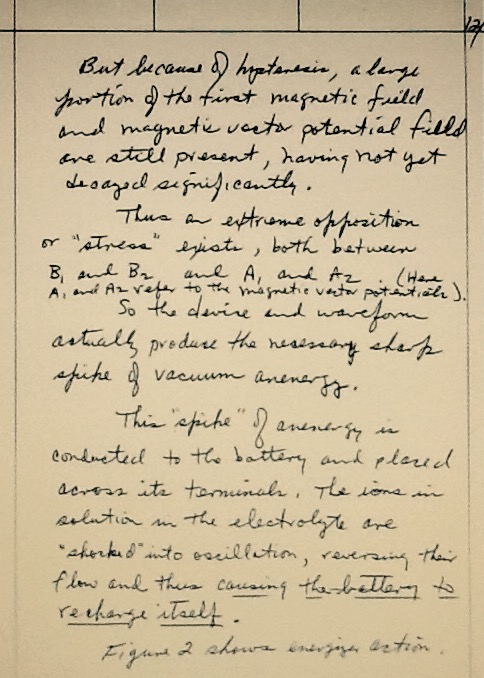 But because of hysteresis, a large
portion of the first magnetic field
and magnetic vector potential field
are still present, having not yet
decayed significantly.
Thus an extreme opposition
or "stress" exists, both between
B, and B2 and A, and A2. (Here
A, and A2 refer to the magnetic vector potentials).
So the device and waveform
actually produce the necessary sharp
spike of vacuum anenergy.
This "spike" of anenergy is
conducted to the battery and placed
across its terminals. The ions in
solution in the electrolyte are
"shocked" into oscillation, reversing their
flow and thus causing the battery to
recharge itself.
Figure 2 shows energizer action.